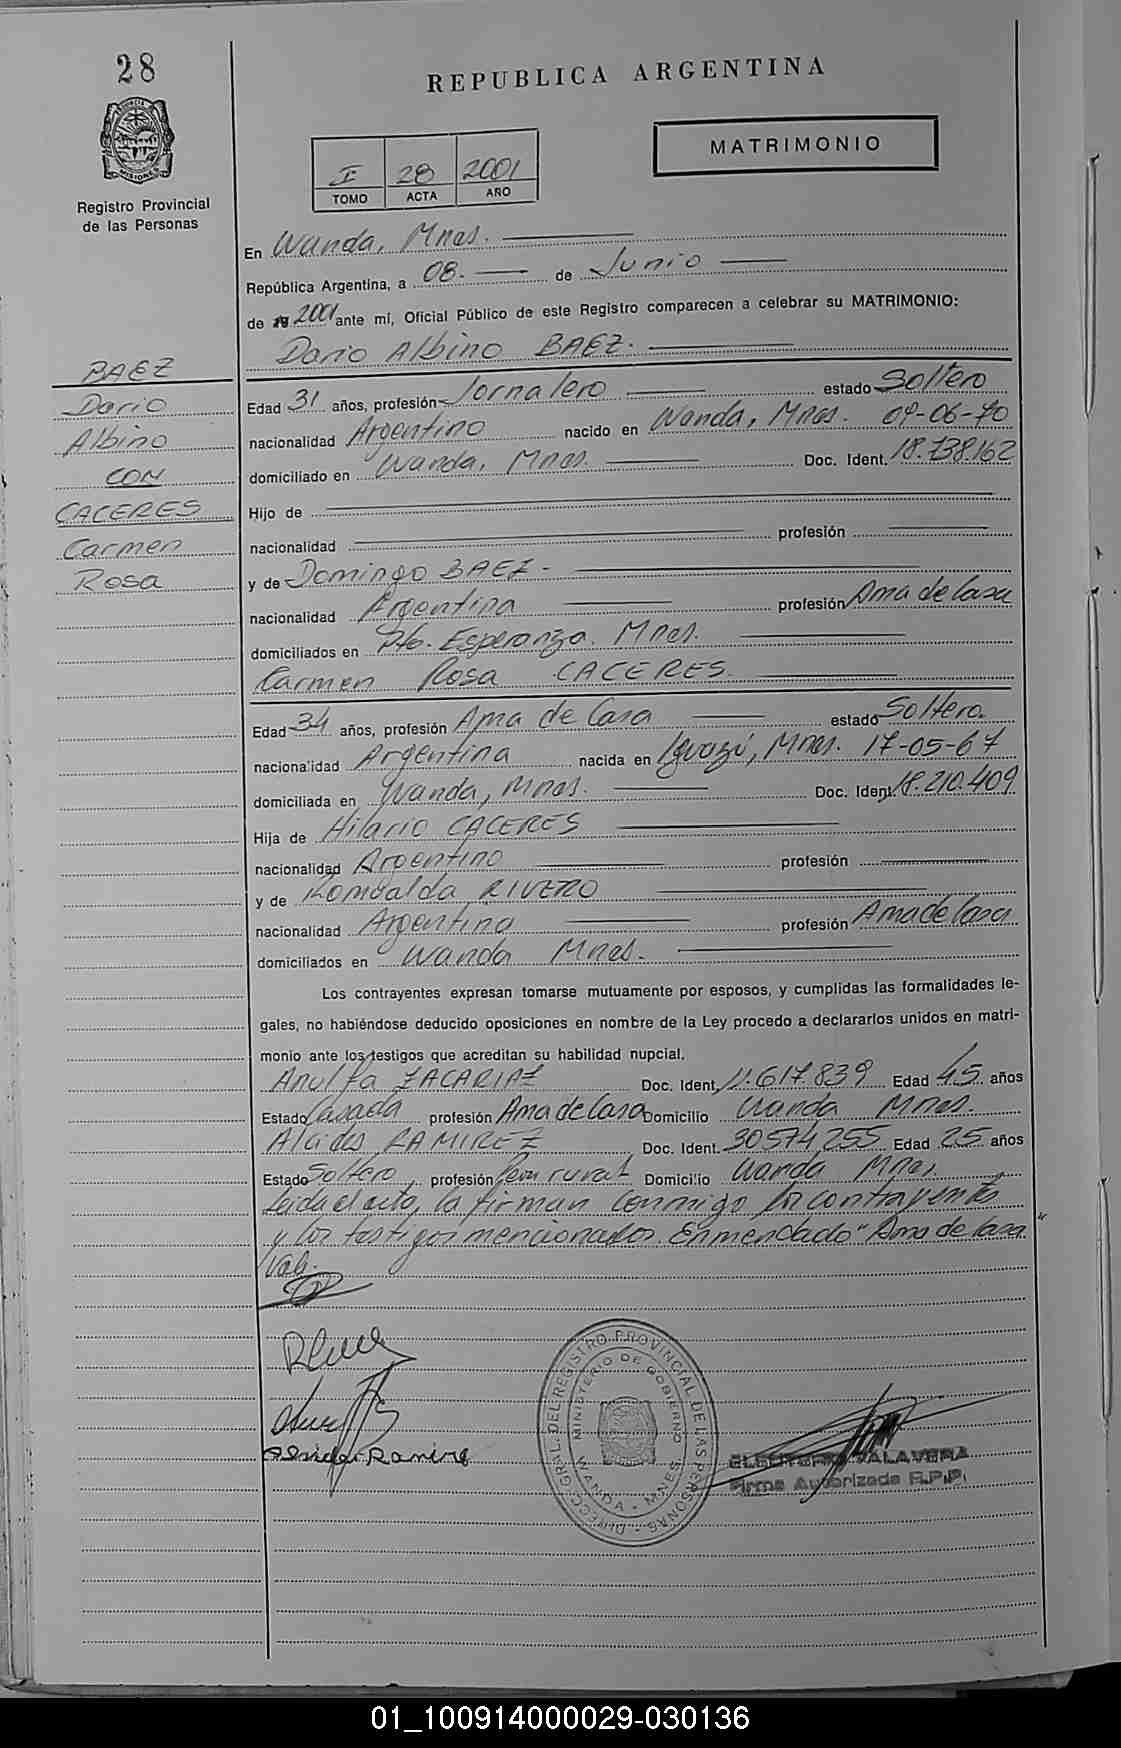 28
REPUBLICA ARGENTINA
MATRIMONIO
I 28 2001
TOMO ACTA AÑO
Registro Provincial
de las Personas
En Wanda, Mnes.
República Argentina, a 08. de Junio
de 2001 ante mí, Oficial Público de este Registro comparecen a celebrar su MATRIMONIO:
Dario Albino BAEZ.
BAEZ
Dario
Albino
CON
CACERES
Carmen
Rosa
Edad 31 años, profesión Jornalero estado Soltero
nacionalidad Argentino nacido en Wanda, Mnes. 09-06-70
domiciliado en Wanda, Mnes. Doc. Ident. 18.738.162
Hijo de
nacionalidad profesión
y de Domingo BAEZ.
nacionalidad Argentina profesión Ama de Casa
domiciliados en Pto. Esperanza. Mnes.
Carmen Rosa CACERES.
Edad 34 años, profesión Ama de Casa estado Soltera.
nacionalidad Argentina nacida en Iguazú, Mnes. 17-05-67
domiciliada en Wanda, Mnes. Doc. Ident. 18.210.409
Hija de Hilario CACERES
nacionalidad Argentino profesión
y de Romualda RIVERO
nacionalidad Argentina profesión Ama de Casa
domiciliados en Wanda Mnes.
Los contrayentes expresan tomarse mutuamente por esposos, y cumplidas las formalidades le-
gales, no habiéndose deducido oposiciones en nombre de la Ley procedo a declararlos unidos en matri-
monio ante los testigos que acreditan su habilidad nupcial.
Anulfa ZACARIAZ Doc. Ident. 11.617.839 Edad 45 años
Estado Casada profesión Ama de Casa Domicilio Wanda Mnes.
Alcides RAMIREZ Doc. Ident. 30574,255 Edad 25 años
Estado Soltero profesión Peon rural Domicilio Wanda Mnes.
Leida el acta, la firman conmigo los contrayentes
y los testigos mencionados. Enmendado "Ama de Casa"
Vale.
Alcides Ramirez
DIRECC. GRAL. DEL REGISTRO PROVINCIAL DE LAS PERSONAS
MINISTERIO DE GOBIERNO
WANDA - MNES
ELEUTERIO TALAVERA
Firma Autorizada R.P.P.
01_100914000029-030136